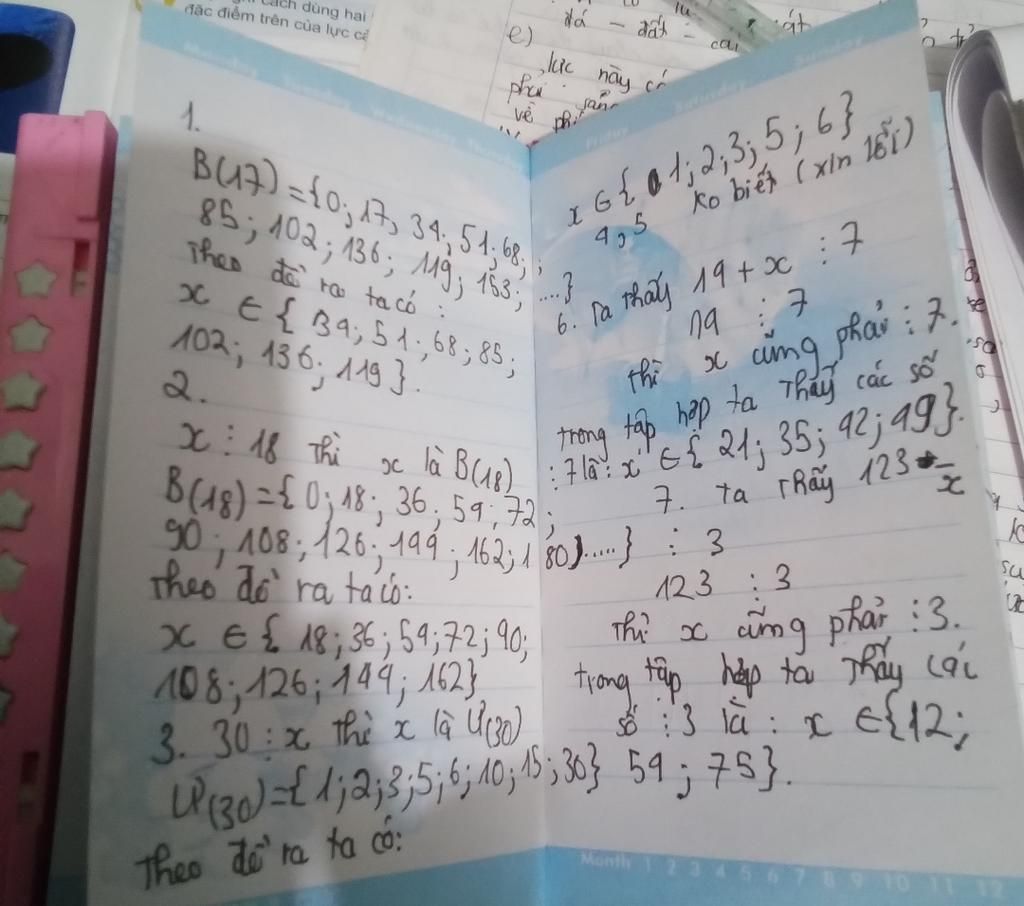 cách dùng hai
đặc điểm trên của lực
đá - đất -
e)
lực này
phải
về
1.
B(17) = {0; 17; 34; 51; 68;
85; 102; 136; 119; 153; ....}
Theo đề ra ta có:
x ∈ { 34; 51; 68; 85;
102; 136; 119}.
2.
x ⋮ 18 thì x là B(18)
B(18) = {0; 18; 36; 54; 72;
90; 108; 126; 144; 162; 180; .....}
Theo đề ra ta có:
x ∈ { 18; 36; 54; 72; 90;
108; 126; 144; 162}
3. 30 ⋮ x thì x là Ư(30)
Ư(30) = {1; 2; 3; 5; 6; 10; 15; 30}
Theo đề ra ta có:
x ∈ { 1; 2; 3; 5; 6}
4, 5 ko biết (xin lỗi)
6. Ta thấy 14 + x ⋮ 7
14 ⋮ 7
thì x cũng phải ⋮ 7.
trong tập hợp ta thấy các số
⋮ 7 là: x ∈ { 21; 35; 42; 49}.
7. ta thấy 123 - x
⋮ 3
123 ⋮ 3
Thì x cũng phải ⋮ 3.
trong tập hợp ta thấy các
số ⋮ 3 là : x ∈ {12;
54 ; 75}.
Month 1 2 3 4 5 6 7 8 9 10 11 12